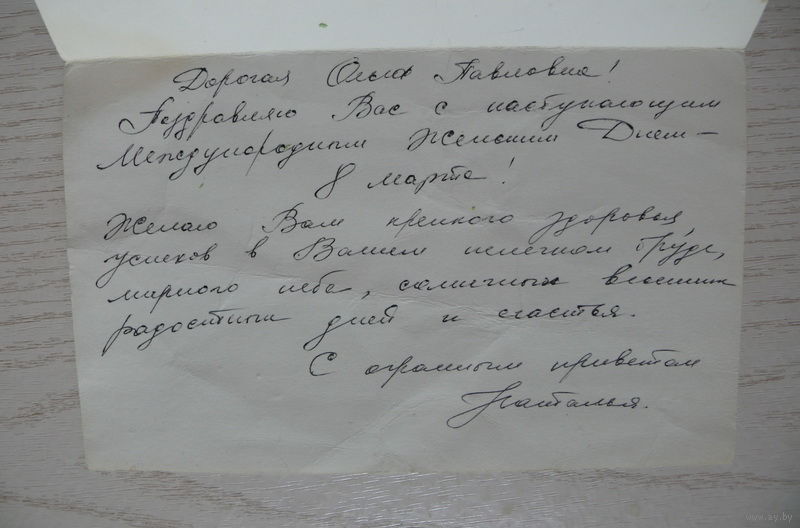 Дорогая Ольга Павловна!
Поздравляю Вас с наступающим
Международным Женским Днем —
8 марта!
Желаю Вам крепкого здоровья,
успехов в Вашем нелегком труде,
мирного неба, солнечных весенних
радостных дней и счастья.
С огромным приветом
Наталья.
www.ay.by